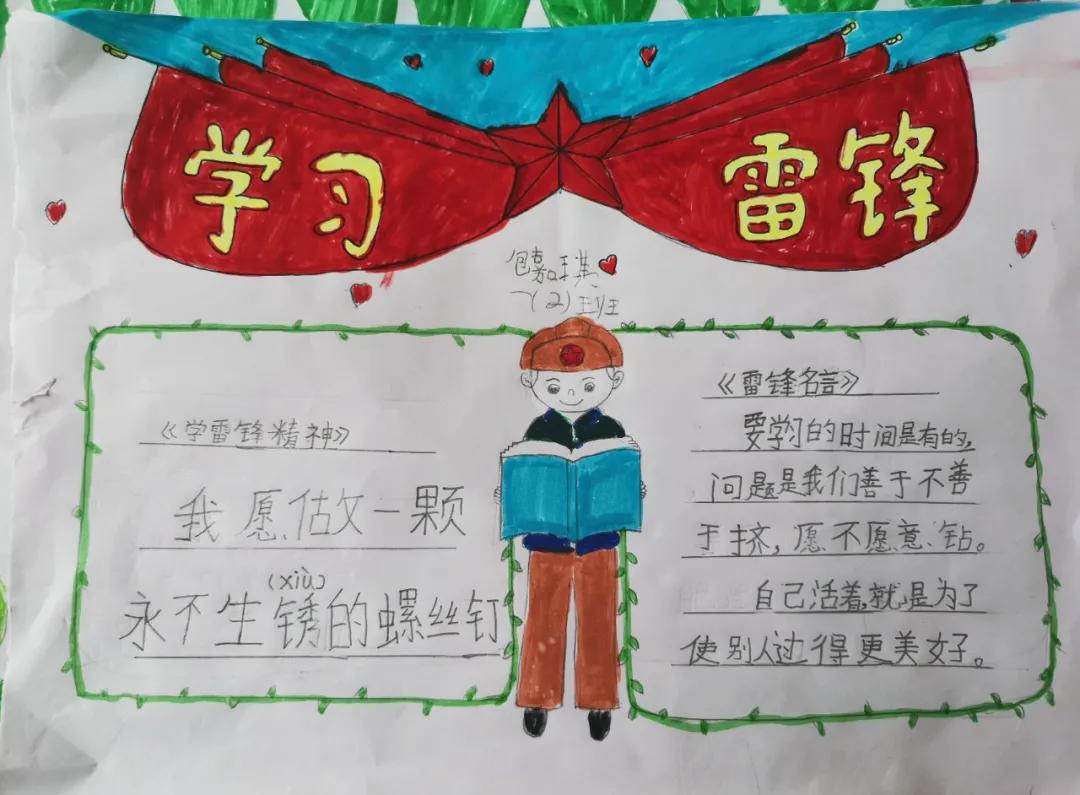 学习 雷锋
包嘉琪
一(2)班
《学雷锋精神》
我愿做一颗
(xiù)
永不生锈的螺丝钉
《雷锋名言》
要学习的时间是有的,
问题是我们善于不善
于挤，愿不愿意钻。
自己活着,就是为了
使别人过得更美好。